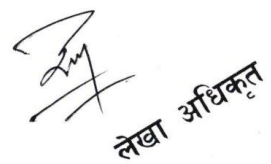 लेखा अधिकृत